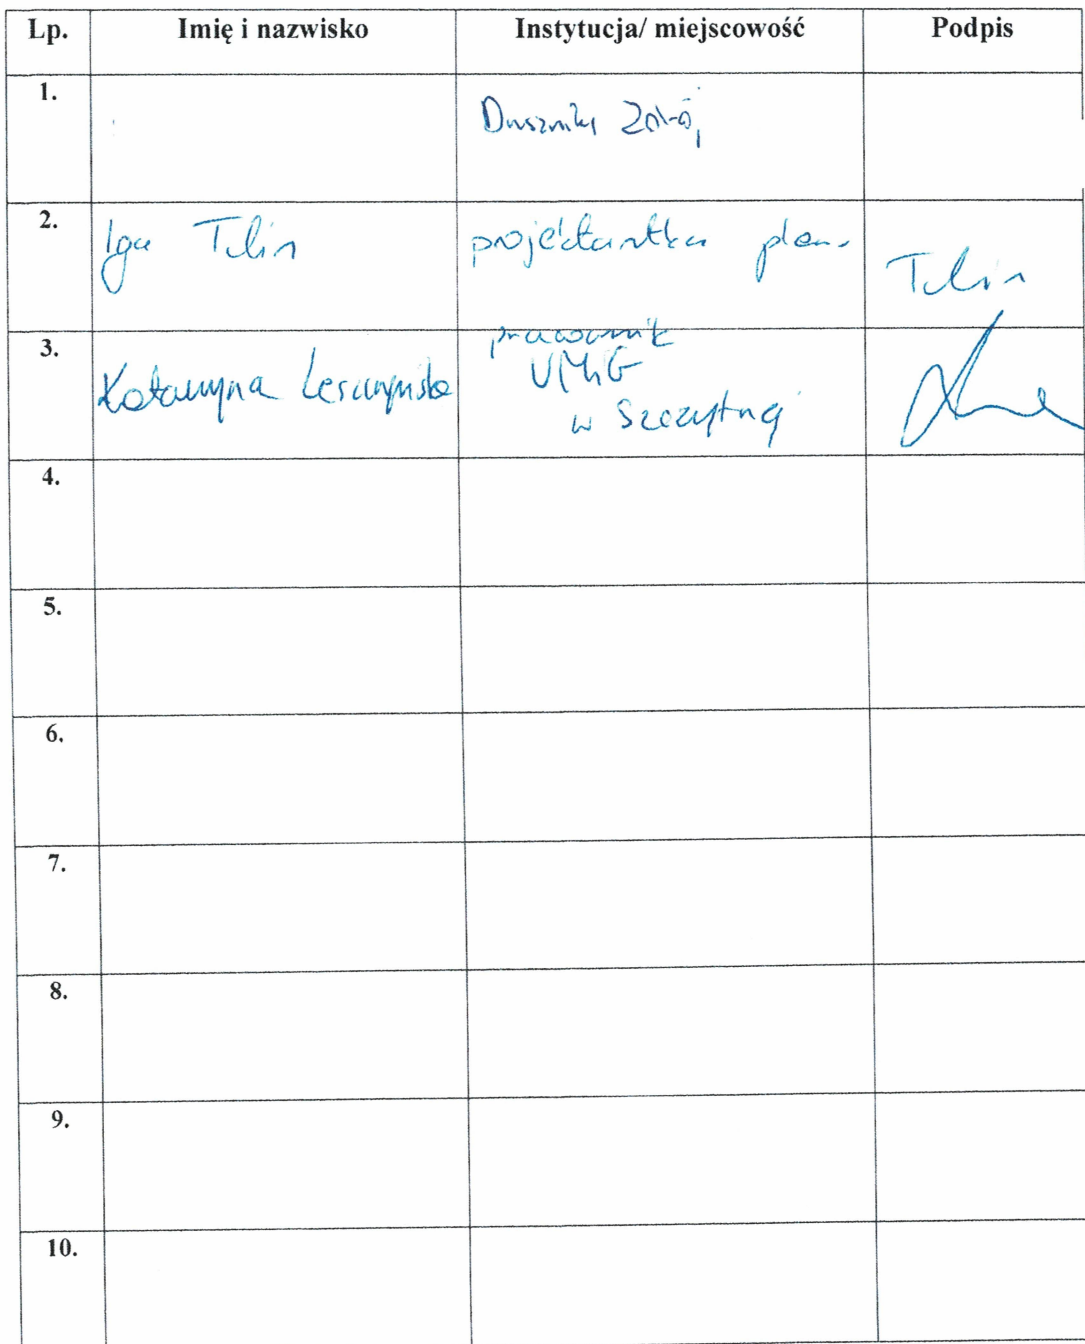 Lp. Imię i nazwisko Instytucja/ miejscowość Podpis
1. Duszniki Zdrój
2. Iga Tulin projektantka planu Tulin
3. pracownik
Katarzyna Leszczyńska UMiG
w Szczytnej
4.
5.
6.
7.
8.
9.
10.